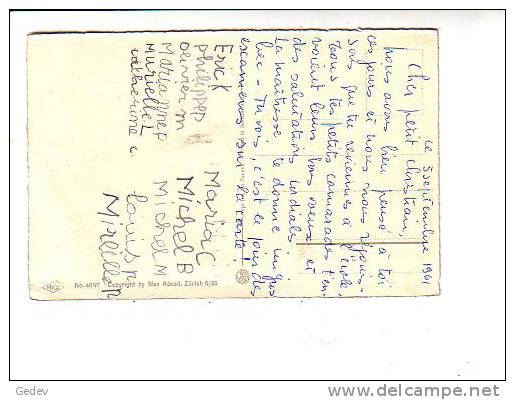 ce 5 septembre 1961
Cher petit Christian,
nous avons bien pensé à toi
ces jours et nous nous réjouis-
sons que tu reviennes à l'école.
Tous tes petits camarades t'en-
voient leurs bons voeux et
des salutations cordiales
La maîtresse te donne un gros
bec. Tu vois, c'est le jour des
examens sur la carte!
Eric K
philippe
olivier M
Marianne P
Murielle L
catherine C.
Maria C
Michel B
Michel M
Louis P
Mireille R
No. 4697 Copyright by Max Künzli, Zürich 6/35
Gedev
delcampe.net